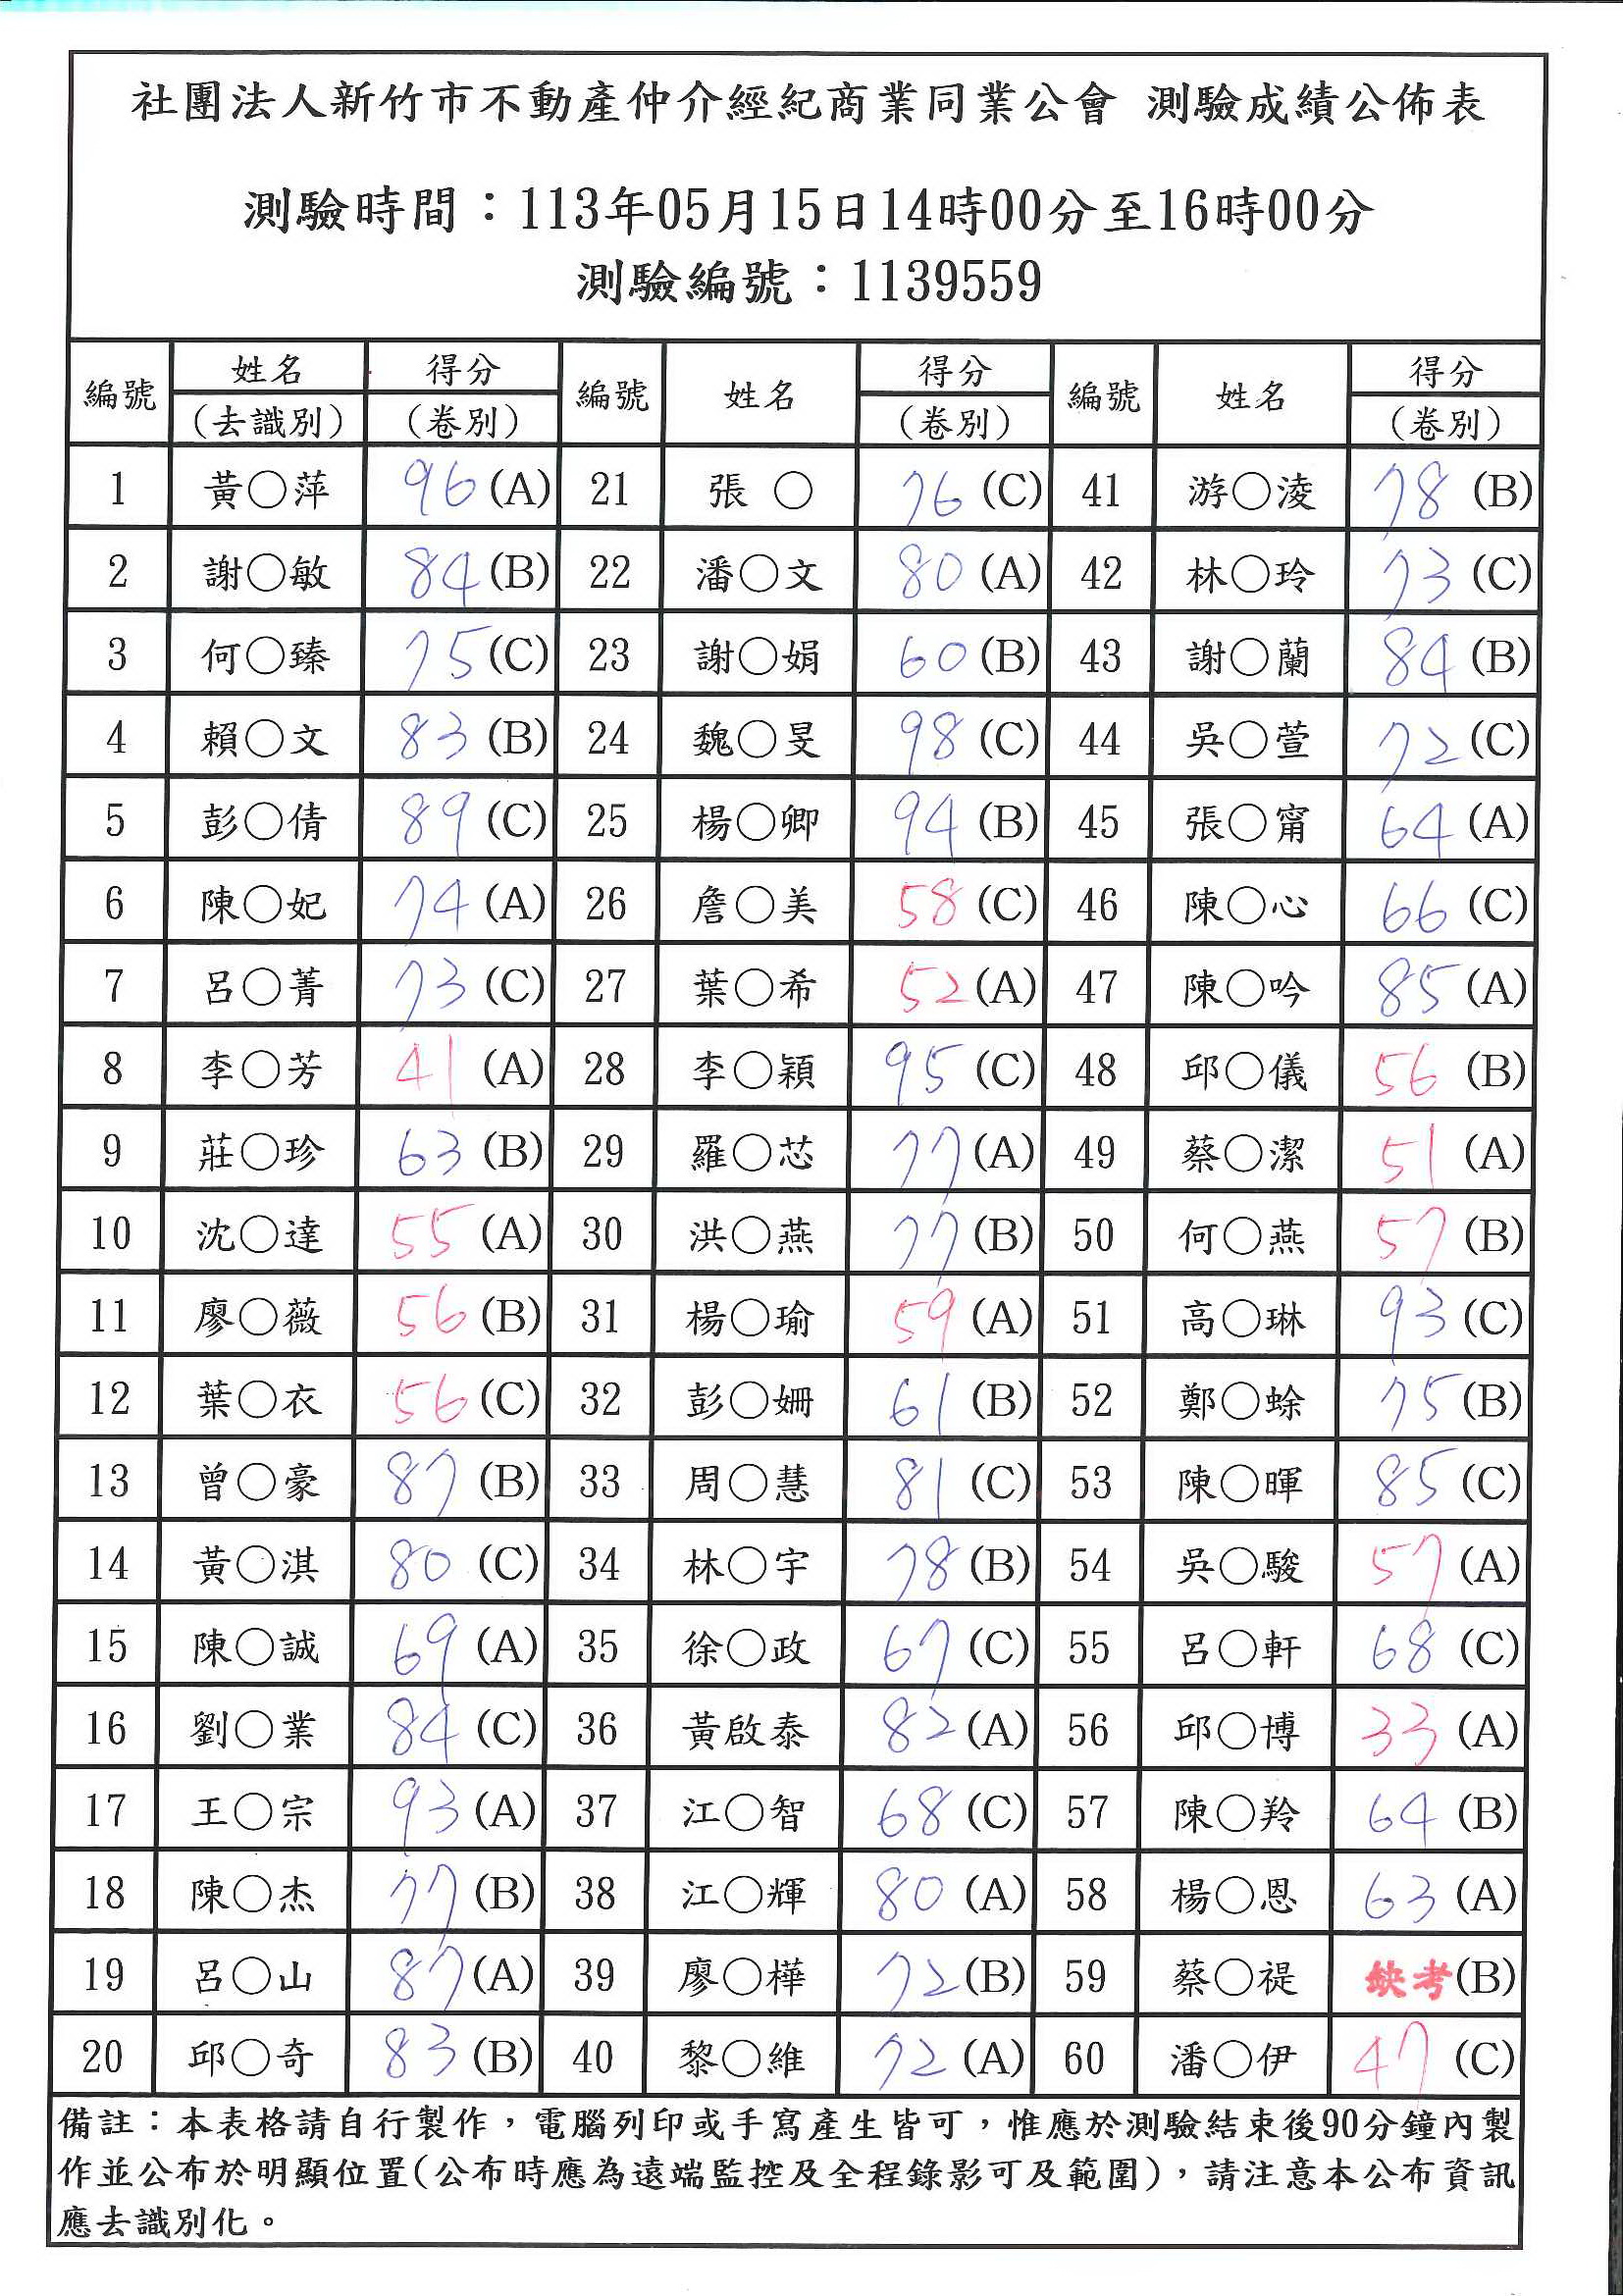 社團法人新竹市不動產仲介經紀商業同業公會 測驗成績公佈表
測驗時間：113年05月15日14時00分至16時00分
測驗編號：1139559
編號 姓名 得分 編號 姓名 得分 編號 姓名 得分
(去識別) (卷別) (卷別) (卷別)
1 黃○萍 96 (A) 21 張 ○ 76 (C) 41 游○淩 78 (B)
2 謝○敏 84 (B) 22 潘○文 80 (A) 42 林○玲 73 (C)
3 何○臻 75 (C) 23 謝○娟 60 (B) 43 謝○蘭 84 (B)
4 賴○文 83 (B) 24 魏○旻 98 (C) 44 吳○萱 72 (C)
5 彭○倩 89 (C) 25 楊○卿 94 (B) 45 張○甯 64 (A)
6 陳○妃 74 (A) 26 詹○美 58 (C) 46 陳○心 66 (C)
7 呂○菁 73 (C) 27 葉○希 52 (A) 47 陳○吟 85 (A)
8 李○芳 41 (A) 28 李○穎 95 (C) 48 邱○儀 56 (B)
9 莊○珍 63 (B) 29 羅○芯 77 (A) 49 蔡○潔 51 (A)
10 沈○達 55 (A) 30 洪○燕 77 (B) 50 何○燕 57 (B)
11 廖○薇 56 (B) 31 楊○瑜 59 (A) 51 高○琳 93 (C)
12 葉○衣 56 (C) 32 彭○姍 61 (B) 52 鄭○蜍 75 (B)
13 曾○豪 87 (B) 33 周○慧 81 (C) 53 陳○暉 85 (C)
14 黃○淇 80 (C) 34 林○宇 78 (B) 54 吳○駿 57 (A)
15 陳○誠 69 (A) 35 徐○政 67 (C) 55 呂○軒 68 (C)
16 劉○業 84 (C) 36 黃啟泰 82 (A) 56 邱○博 33 (A)
17 王○宗 93 (A) 37 江○智 68 (C) 57 陳○羚 64 (B)
18 陳○杰 77 (B) 38 江○輝 80 (A) 58 楊○恩 63 (A)
19 呂○山 87 (A) 39 廖○樺 72 (B) 59 蔡○禔 缺考 (B)
20 邱○奇 83 (B) 40 黎○維 72 (A) 60 潘○伊 47 (C)
備註：本表格請自行製作，電腦列印或手寫產生皆可，惟應於測驗結束後90分鐘內製
作並公布於明顯位置(公布時應為遠端監控及全程錄影可及範圍)，請注意本公布資訊
應去識別化。